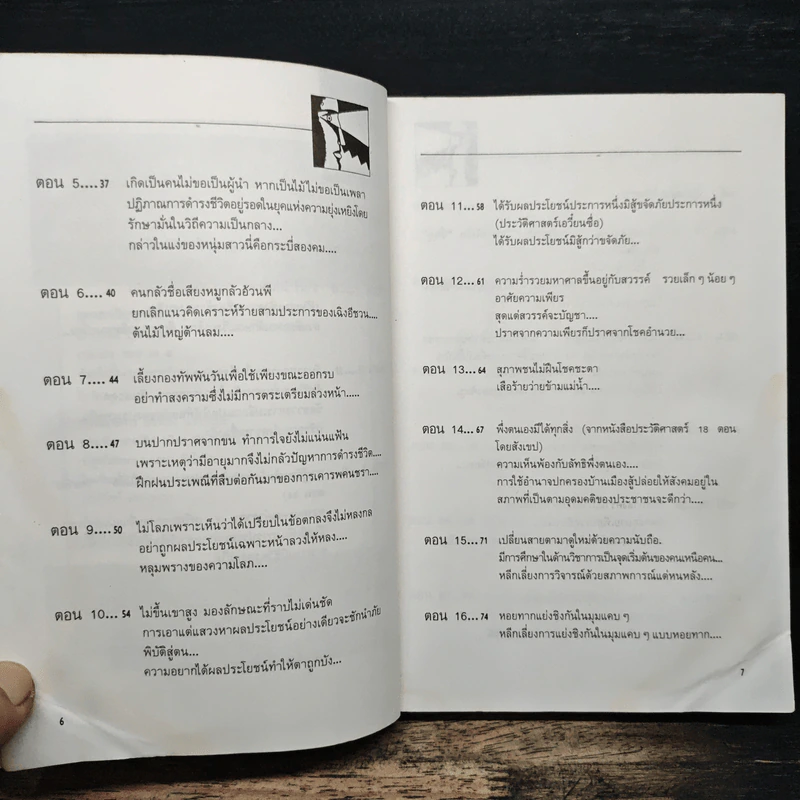 ตอน 5....37 เกิดเป็นคนไม่ขอเป็นผู้นำ หากเป็นไม้ไม่ขอเป็นเพลา
ปฏิภาณการดำรงชีวิตอยู่รอดในยุคแห่งความยุ่งเหยิงโดย
รักษามั่นในวิถีความเป็นกลาง...
กล่าวในแง่ของหนุ่มสาวนี่คือกระบี่สองคม....
ตอน 6.... 40 คนกลัวชื่อเสียงหมูกลัวอ้วนพี
ยกเลิกแนวคิดเคราะห์ร้ายสามประการของเฉิงอีชวน....
ต้นไม้ใหญ่ต้านลม....
ตอน 7.... 44 เลี้ยงกองทัพพันวันเพื่อใช้เพียงขณะออกรบ
อย่าทำสงครามซึ่งไม่มีการตระเตรียมล่วงหน้า.....
ตอน 8....47 บนปากปราศจากขน ทำการใจยังไม่แน่นแฟ้น
เพราะเหตุว่ามีอายุมากจึงไม่กลัวปัญหาการดำรงชีวิต....
ฝึกฝนประเพณีที่สืบต่อกันมาของการเคารพคนชรา....
ตอน 9....50 ไม่โลภเพราะเห็นว่าได้เปรียบในข้อตกลงจึงไม่หลงกล
อย่าถูกผลประโยชน์เฉพาะหน้าลวงให้หลง....
หลุมพรางของความโลภ....
ตอน 10... 54 ไม่ขึ้นเขาสูง มองลักษณะที่ราบไม่เด่นชัด
การเอาแต่แสวงหาผลประโยชน์อย่างเดียวจะชักนำภัย
พิบัติสู่ตน...
ความอยากได้ผลประโยชน์ทำให้ตาถูกบัง...
6
ตอน 11...58 ได้รับผลประโยชน์ประการหนึ่งมิสู้ขจัดภัยประการหนึ่ง
(ประวัติศาสตร์เอวี๋ยนซื่อ)
ได้รับผลประโยชน์มิสู้กว่าขจัดภัย...
ตอน 12...61 ความร่ำรวยมหาศาลขึ้นอยู่กับสวรรค์ รวยเล็ก ๆ น้อย ๆ
อาศัยความเพียร
สุดแต่สวรรค์จะบัญชา....
ปราศจากความเพียรก็ปราศจากโชคอำนวย...
ตอน 13...64 สุภาพชนไม่ฝืนโชคชะตา
เสือร้ายว่ายข้ามแม่น้ำ....
ตอน 14...67 พึ่งตนเองมีได้ทุกสิ่ง (จากหนังสือประวัติศาสตร์ 18 ตอน
โดยสังเขป)
ความเห็นพ้องกับลัทธิพึ่งตนเอง....
การใช้อำนาจปกครองบ้านเมืองสู้ปล่อยให้สังคมอยู่ใน
สภาพที่เป็นตามอุดมคติของประชาชนจะดีกว่า....
ตอน 15...71 เปลี่ยนสายตามาดูใหม่ด้วยความนับถือ.
มีการศึกษาในด้านวิชาการเป็นจุดเริ่มต้นของคนเหนือคน...
หลีกเลี่ยงการวิจารณ์ด้วยสภาพการณ์แต่หนหลัง....
ตอน 16...74 หอยทากแย่งชิงกันในมุมแคบ ๆ
หลีกเลี่ยงการแย่งชิงกันในมุมแคบ ๆ แบบหอยทาก....
7